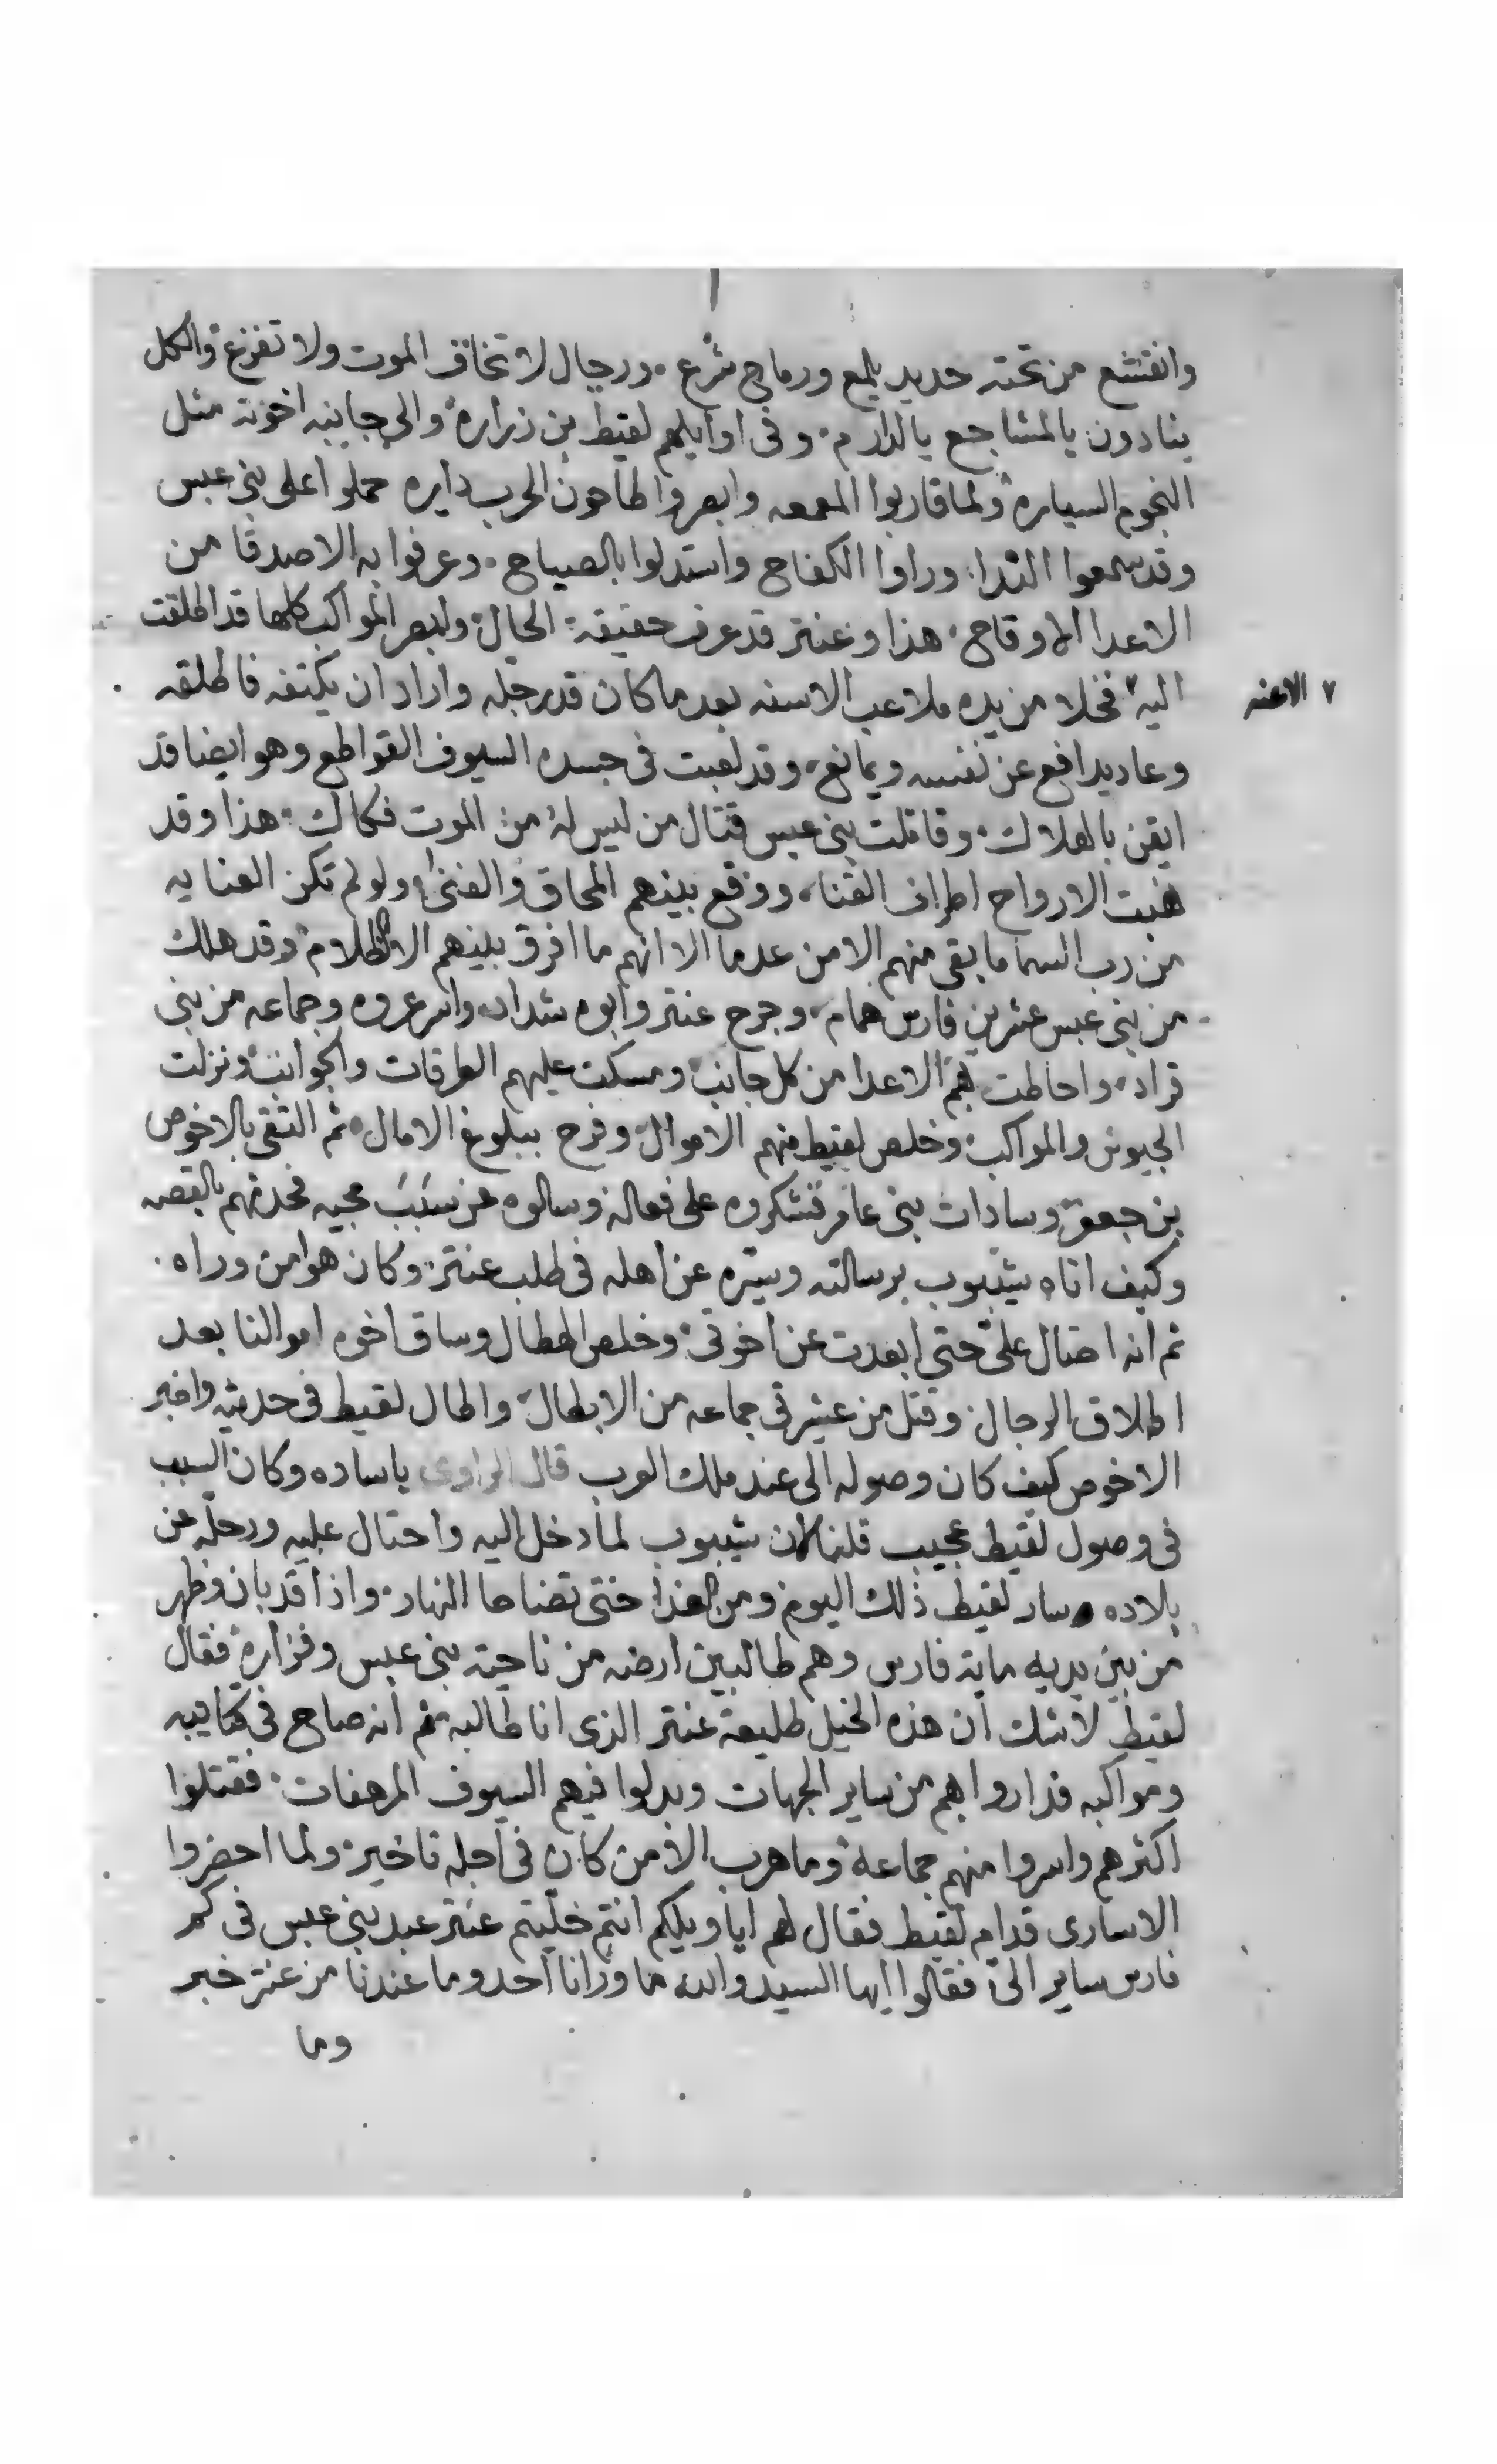 وانقشع من تحته حديد يلمع ورماح شرع ورجال لا تخاف الموت ولا تفزع والكل
ينادون يالمشاجع يالدارم وفى اوايلهم لقيط بن زراره والى جانبه اخوته مثل
النجوم السياره ولما قاربوا المعمعه وابصروا طاحون الحرب دايره حملوا على بنى عبس
وقد سمعوا الندا وراوا الكفاح واستدلوا بالصياح وعرفوا به الاصدقا من
الاعدا الاوقاح هذا وعنتر قد عرف حقيقة الحال وابصر المواكب كلها قد اطلقت
اليه ٧ فخلا من يده ملاعب الاسنه بعد ما كان قد رجله واراد ان يكتفه فاطلقه
٧ الاعنه
وعاد يدافع عن نفسه ويمانع وقد لعبت فى جسده السيوف القواطع وهو ايضا قد
ايقن بالهلاك وقاتلت بنى عبس قتال من ليس له من الموت فكاك هذا وقد
نهبت الارواح اطراف القنا ووقع بينهم المحاق والفنا ولو لم تكن العنايه
من رب السما ما بقى منهم الا من عدما الا انهم ما افرق بينهم الا الظلام وقد هلك
من بنى عبس عشرين فارس همام وجرح عنتر وابوه شداد واسر عروه وجماعه من بنى
قراد واحاطت بهم الاعدا من كل جانب ومسكت عليهم الطرقات والجوانب ونزلت
الجيوش والمواكب وخلص لقيط منهم الاموال وفرح ببلوغ الامال ثم التقى بالاخوص
بن جعفر وسادات بنى عامر فشكروه على فعاله وسالوه عن سبب مجيه فحدثهم بالقصه
وكيف اتاه شيبوب برسالته وسيره عن اهله فى طلب عنتر وكان هوا من وراه
ثم انه احتال على حتى ابعدت عن اخوتى وخلص الهطال وساق اخوه اموالنا بعد
اطلاق الرجال وقتل من عشيرتى جماعه من الابطال واطال لقيط فى حديثه واخبر
الاخوص كيف كان وصوله الى عند ملك العرب قال الراوى ياساده وكان السبب
فى وصول لقيط عجيب قلنا لان شيبوب لما دخل اليه واحتال عليه ورحله من
بلاده وسار لقيط ذلك اليوم ومن الغد حتى تضاحا النهار واذا قد بان وظهر
من بين يديه ماية فارس وهم طالبين ارضه من ناحية بنى عبس وفزارة فقال
لقيط لاشك ان هذه الخيل طليعة عنتر الذى انا طالبه ثم انه صاح فى كتايبه
ومواكبه فداروا بهم من ساير الجهات وبدلوا فيهم السيوف المرهفات فقتلوا
اكثرهم واسروا منهم جماعة وما هرب الا من كان فى اجله تاخير ولما احضروا
الاسارى قدام لقيط فقال لهم ايا ويلكم انتم خليتم عنتر عبد بنى عبس فى كم
فارس ساير الى فقالوا ايها السيد والله ما ورانا احد وما عندنا من عنتر خبر
وما